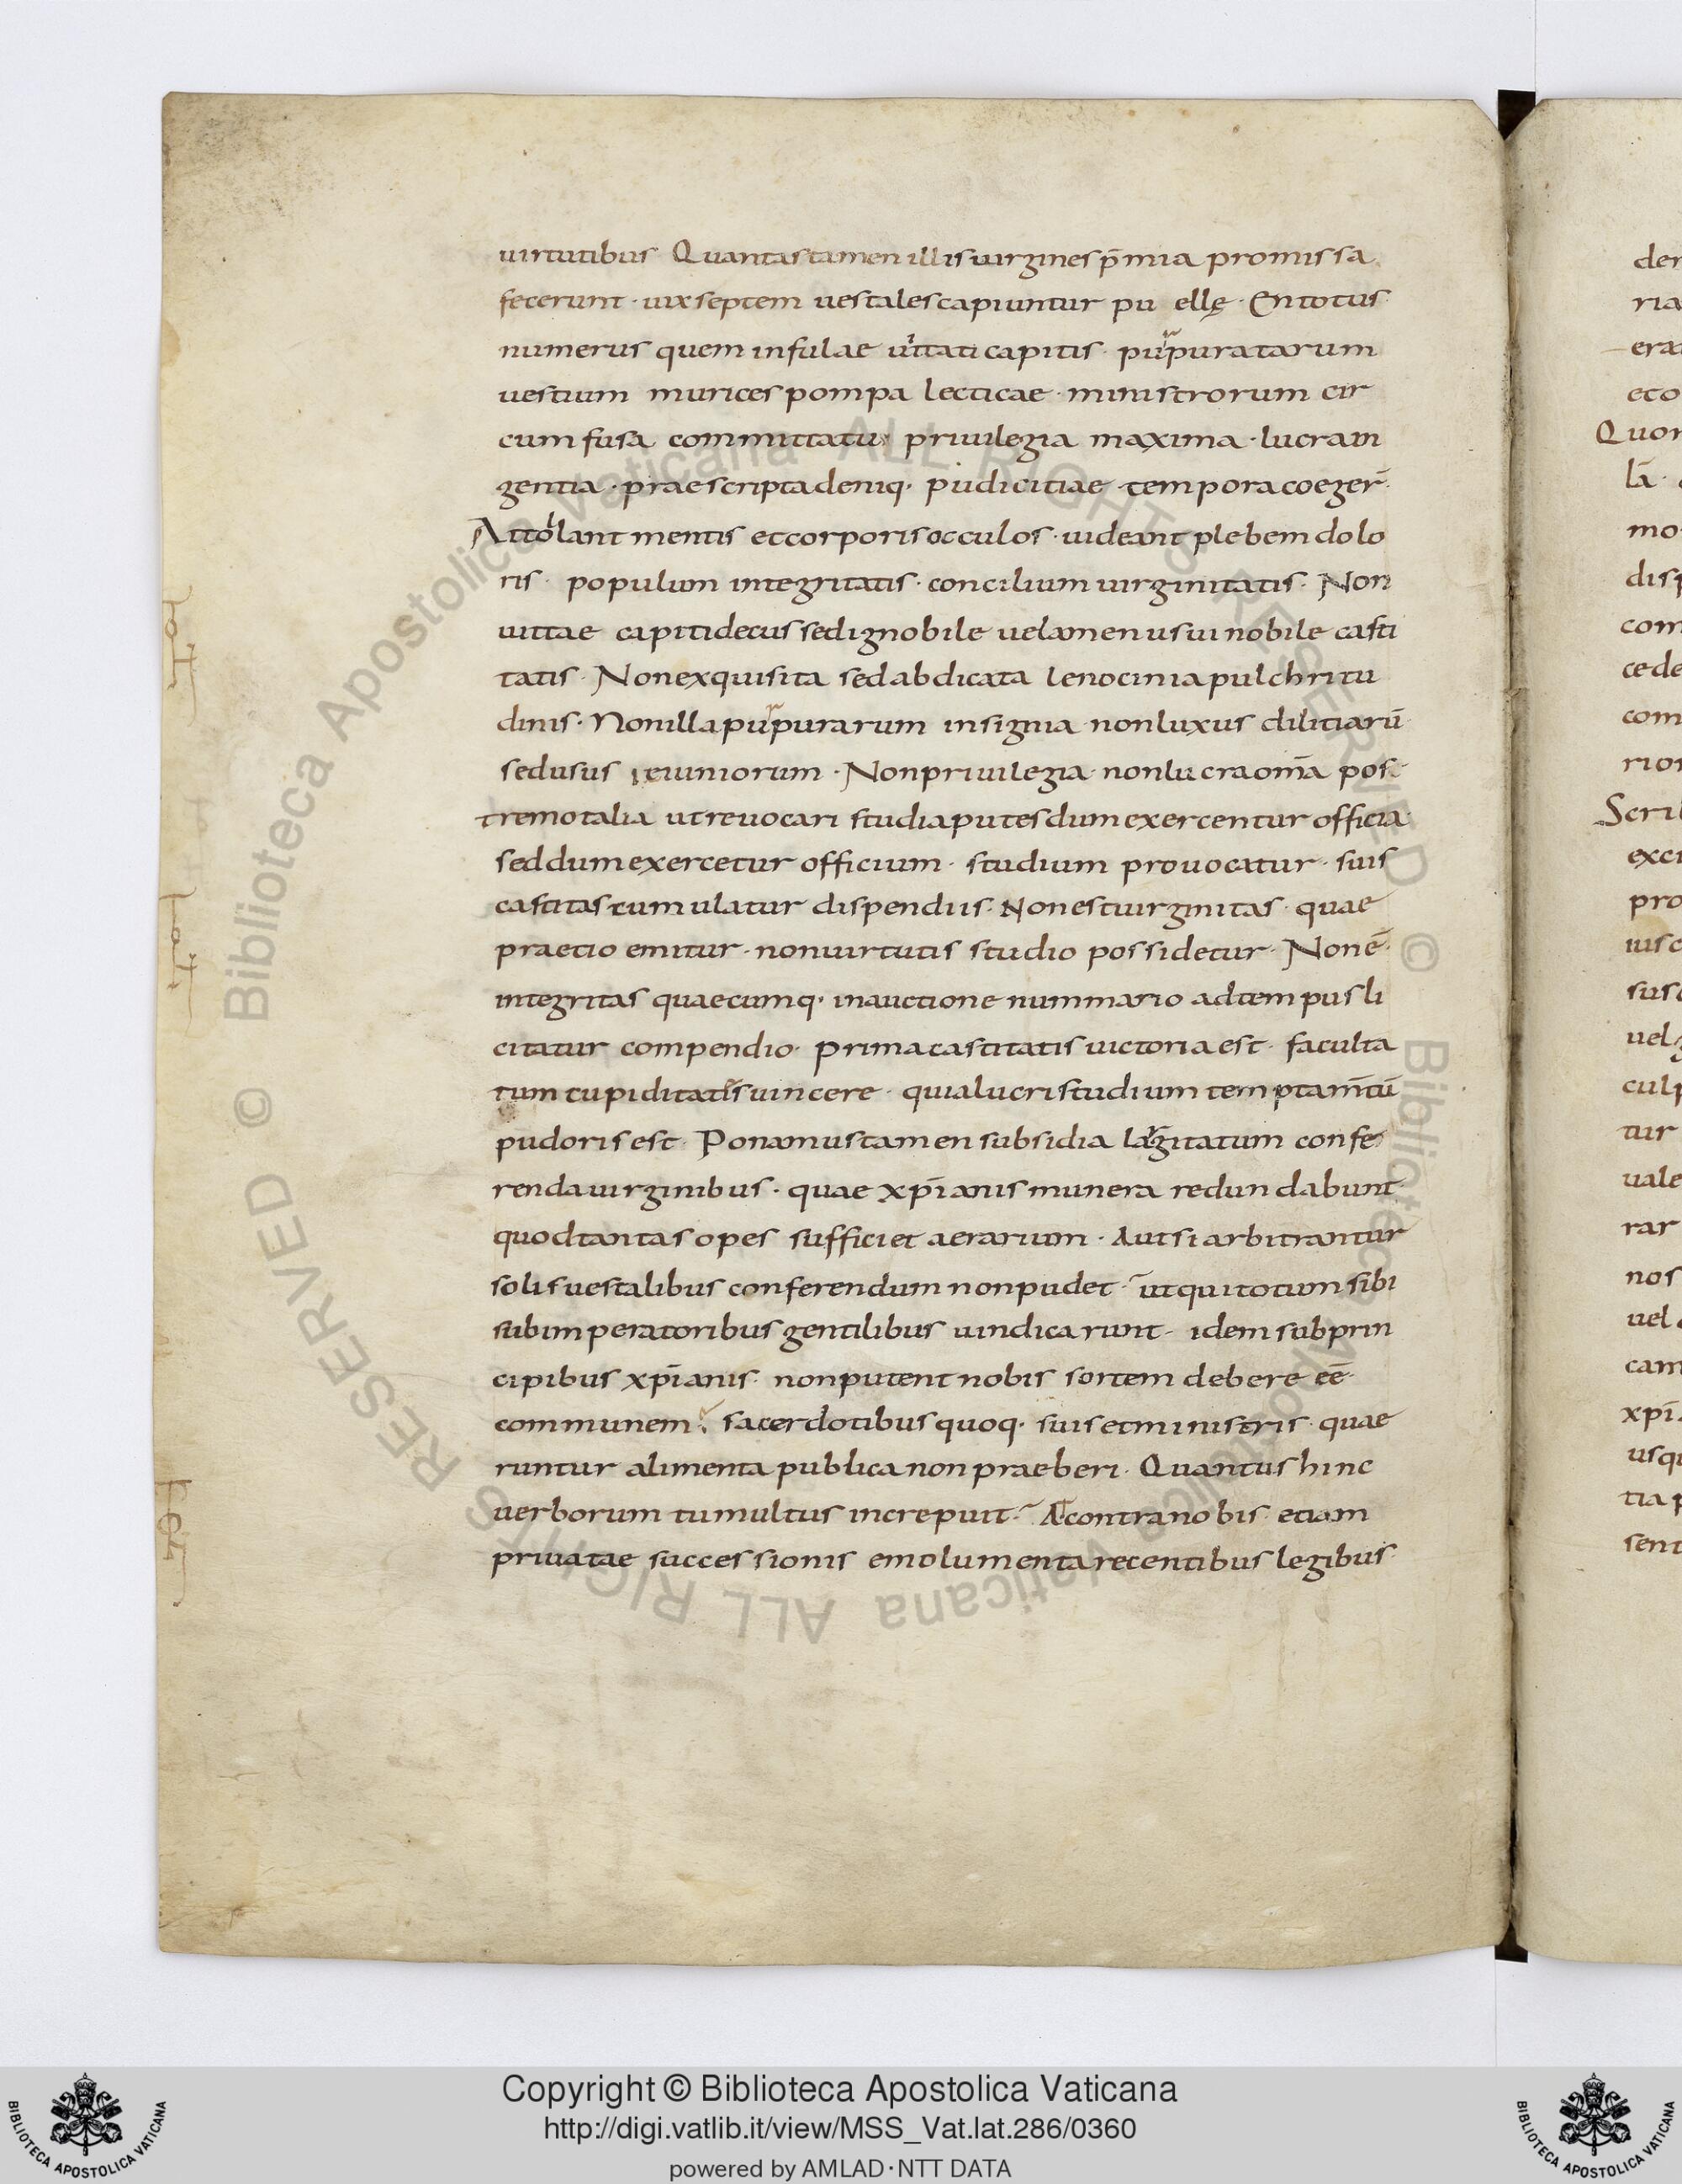 uirtutibus· Quantas tamen illis uirgines p̄mia promissa
fecerunt· uix septem uestales capiuntur pu ellę· En totus
numerus quem infulae uittati capitis· purpuratarum
uestium murices pompa lecticae· ministrorum cir
cumfusa committatu priuilegia maxima· lucra in
gentia· praescripta deniq· pudicitiae tempora coeger̄
Attollant mentis et corporis occulos· uideant plebem dolo
ris· populum integritatis· concilium uirginitatis· Non
uittae capiti decus sed ignobile uelamen usui nobile casti
tatis· Non exquisita sed abdicata lenocinia pulchritu
dinis· Non illa purpurarum insignia non luxus dilitiarū
sed usus ieiuniorum· Non priuilegia non lucra om̄a pos
tremo talia ut reuocari studia putes dum exercentur officia
sed dum exercetur officium· studium prouocatur· suis
castitas cumulatur dispendiis· Non est uirginitas quae
praetio emitur· non uirtutis studio possidetur· Non ē
integritas quaecumq· in auctione nummario ad tempus li
citatur compendio· prima castitatis uictoria est· faculta
tum cupiditates uincere· quia lucri studium temptam̄tū
pudoris est· Ponamus tamen subsidia largitatum confe
renda uirginibus· quae xp̄ianis munera redundabunt
quod tantas opes sufficiet aerarium· Aut si arbitrantur
solis uestalibus conferendum non pudet· ut qui totum sibi
sub imperatoribus gentilibus uindicarunt· idem sub prin
cipibus xp̄ianis· non putent nobis sortem debere eē
communem· sacerdotibus quoq· suis et ministris· quae
runtur alimenta publica non praeberi· Quantus hinc
uerborum tumultus increpuit· At contra nobis etiam
priuatae successionis emolumenta recentibus legibus
Copyright © Biblioteca Apostolica Vaticana
http://digi.vatlib.it/view/MSS_Vat.lat.286/0360
powered by AMLAD·NTT DATA